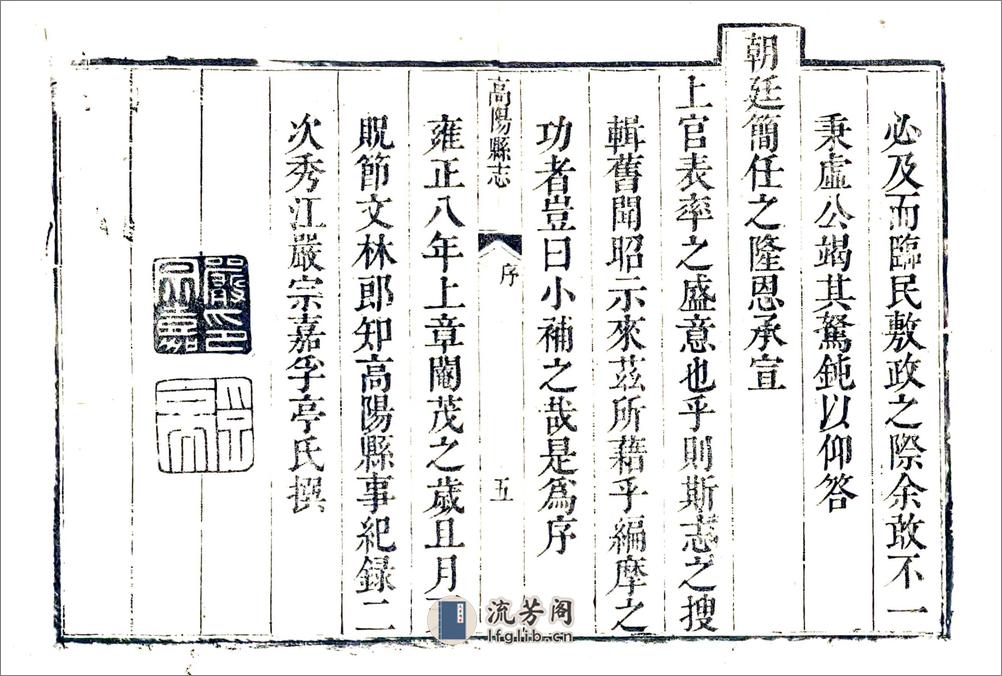 必及而臨民敷政之際余敢不一
秉虛公竭其駑鈍以仰答
朝廷簡任之隆恩承宣
上官表率之盛意也乎則斯志之搜
輯舊聞昭示來茲所藉乎編摩之
功者豈曰小補之哉是爲序
高陽縣志
序
五
雍正八年上章閹茂之歲且月
貺節文林郎知高陽縣事紀録二
次秀江嚴宗嘉孚亭氏撰
嚴印宗嘉
流芳阁
lfglib.cn